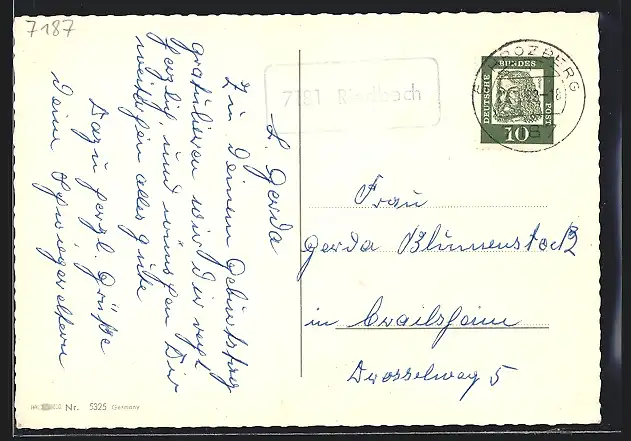 7187
7181 Riedbach
BLROZBERG
DEUTSCHE BUNDES POST
10
L. Gerda
Zu Deinem Geburtstag
gratulieren wir Dir recht
herzlich und wünschen Dir
weiterhin alles gute
Dazu herzl. Grüße
Deine Schwiegereltern
Frau
Gerda Blumenstock
in Crailsheim
Drosselweg 5
Nr. 5325 Germany